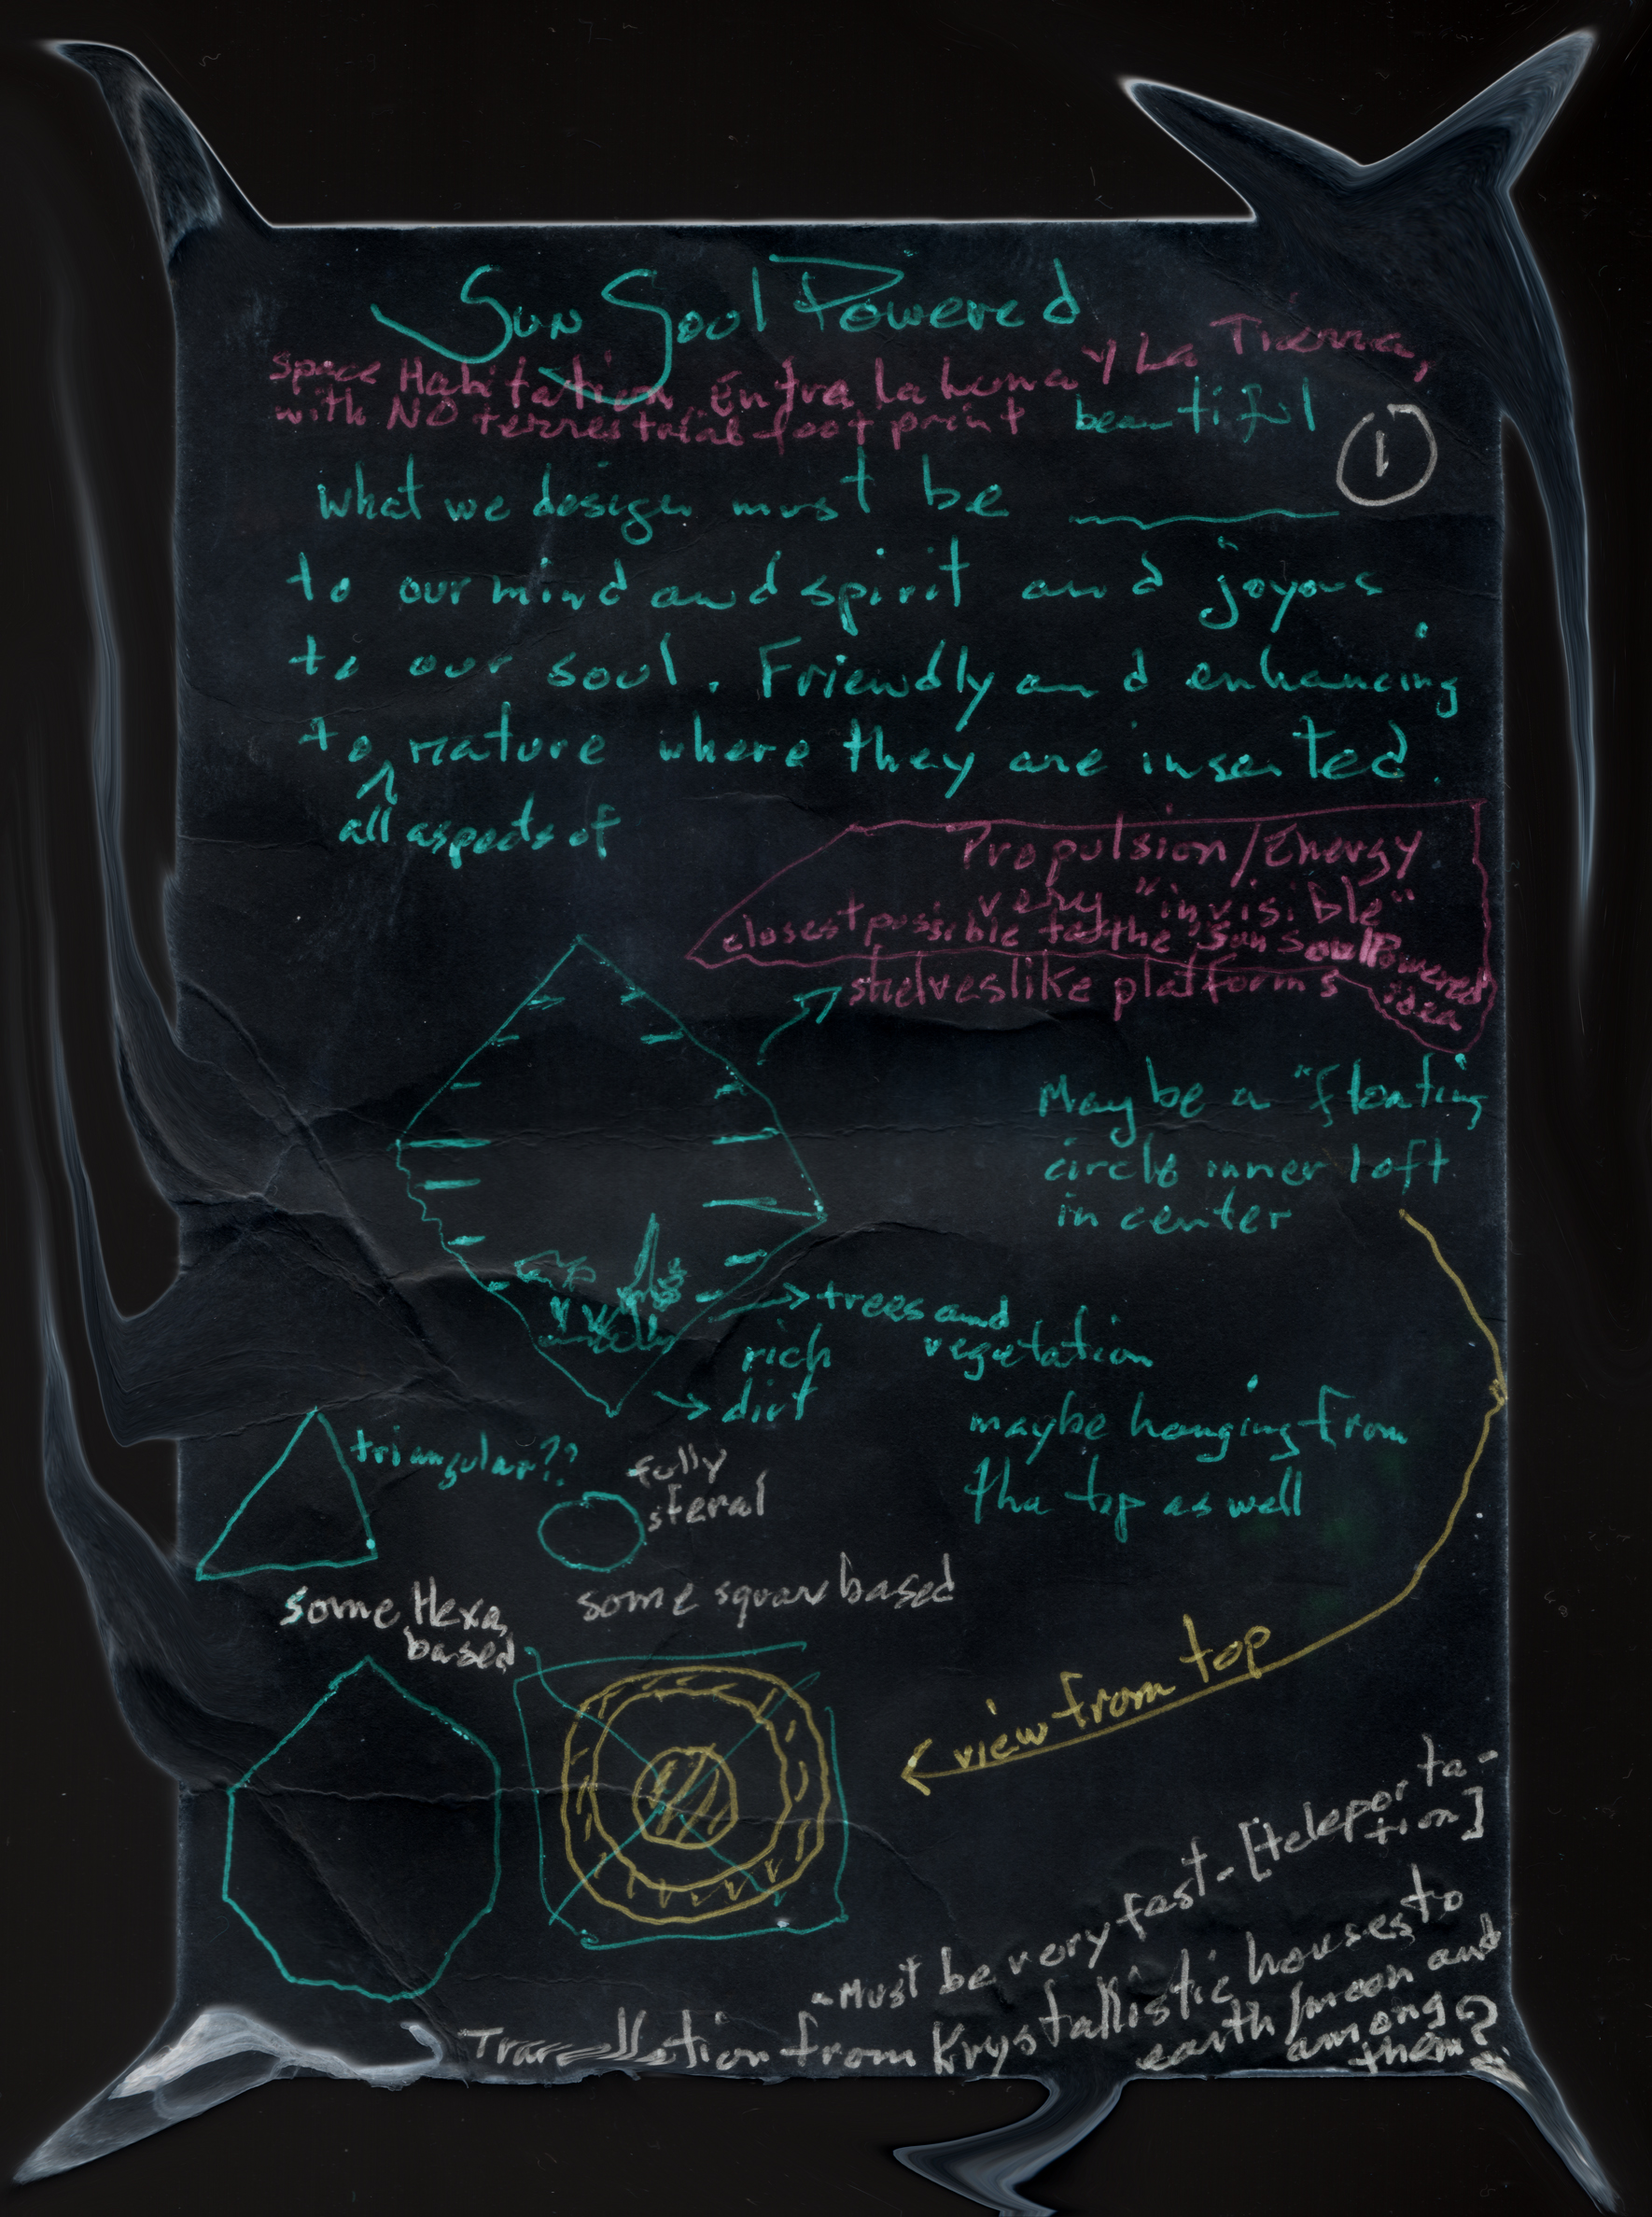 Sun Soul Powered
Space Habitation Entre la Luna y La Tierra,
with NO terrestrial footprint
beautiful
1
What we design must be ______
to our mind and spirit and joyous
to our soul. Friendly and enhancing
to nature where they are inserted.
^
all aspects of
Propulsion/Energy
very "invisible"
closest possible to the "Sun Soul Powered
idea
shelveslike platforms
May be a "floating
circle inner loft
in center
→ trees and
vegetation
rich
→ dirt
maybe hanging from
the top as well
triangular??
fully
sferal
some Hexa
based
some square based
view from top
Must be very fast - [teleporta-
tion]
from Krystallistic houses to
earth/moon and
among
them?